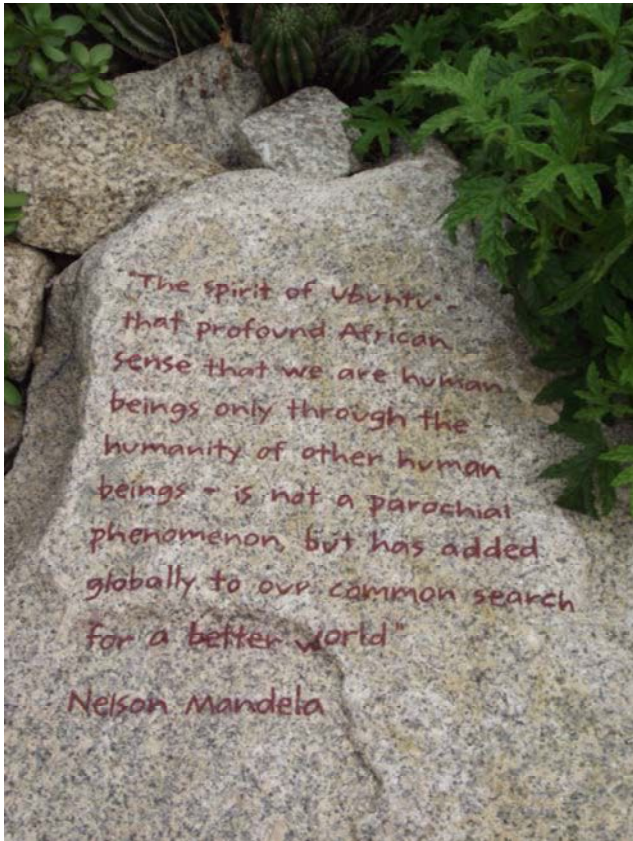 "The spirit of Ubuntu" -
that profound African
sense that we are human
beings only through the
humanity of other human
beings - is not a parochial
phenomenon, but has added
globally to our common search
for a better world"
Nelson Mandela